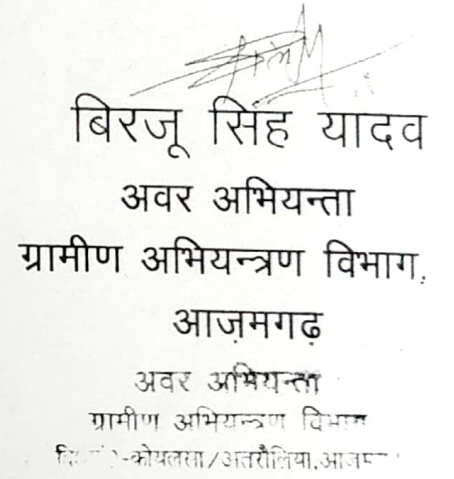 बिरजू सिंह यादव
अवर अभियन्ता
ग्रामीण अभियन्त्रण विभाग,
आज़मगढ़
अवर अभियन्ता
ग्रामीण अभियन्त्रण विभाग
-कोयलसा/अतरौलिया,